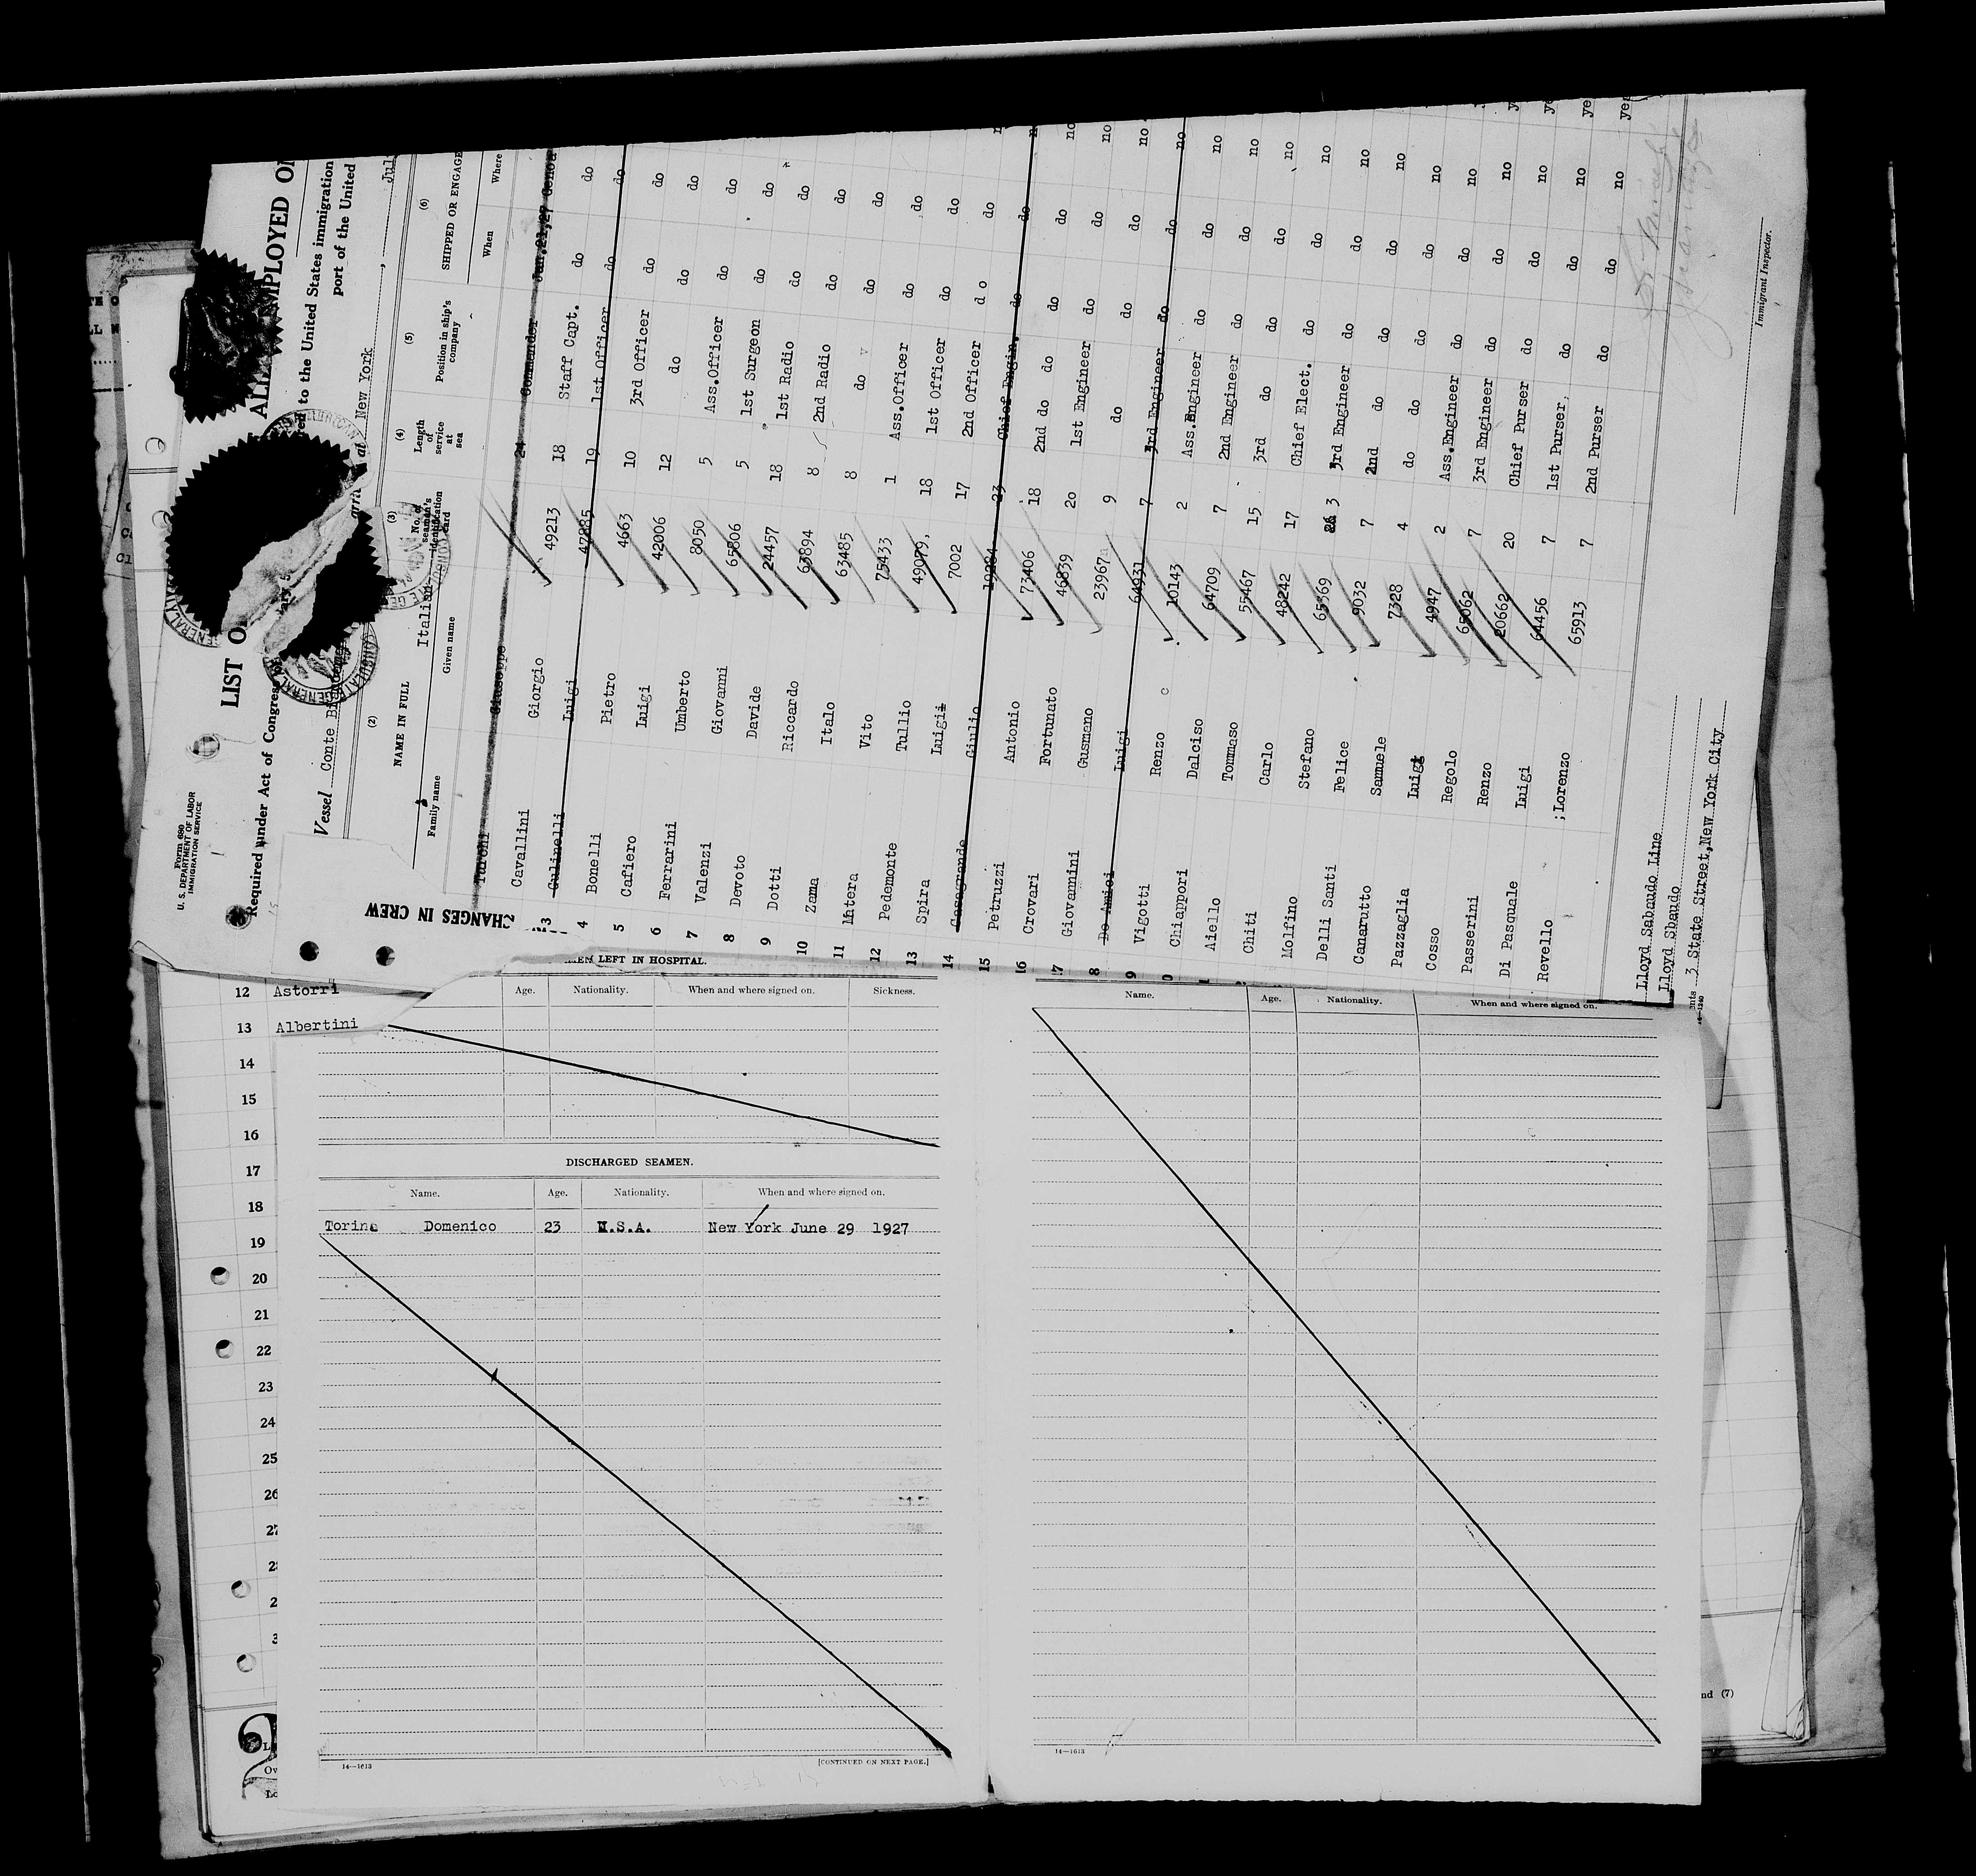 Form 680
U. S. DEPARTMENT OF LABOR
IMMIGRATION SERVICE
LIST O
ALIE
MPLOYED O
Required under Act of Congress
red to the United States immigration
port of the United
Vessel Conte Bi
at New York , Jul
(2) (3) (4) (5) (6)
NAME IN FULL
Italian
Family name Given name
No. of seaman's identification card
Length of service at sea
Position in ship's company
SHIPPED OR ENGAGE
When Where
Giuseppe 24 Comander Jun,21,27 Genoa
Cavallini Giorgio 49213 18 Staff Capt. do do
3 Gulinelli Luigi 47885 19 1st Officer do do
4 Bonelli Pietro 4663 10 3rd Officer do do
5 Cafiero Luigi 42006 12 do do do
6 Ferrarini Umberto 8050 5 Ass.Officer do do
7 Valenzi Giovanni 65806 5 1st Surgeon do do
8 Devoto Davide 24457 18 1st Radio do do
9 Dotti Riccardo 63894 8 2nd Radio do do
10 Zama Italo 63485 8 do do do
11 Matera Vito 75433 1 Ass.Officer do do
12 Pedemonte Tullio 49079, 18 1st Officer do do
13 Spira Luigi 7002 17 2nd Officer do do
14 Casagrande Giulio 19284 23 Chief Engin. do do
15 Petruzzi Antonio 73406 18 2nd do do do do no
16 Crovari Fortunato 46839 20 1st Engineer do do no
17 Giovannini Gusmano 23967 9 do do do no
8 De Amici Luigi 64931 7 3rd Engineer do do no
9 Vigotti Renzo 10143 2 Ass.Engineer do do no
0 Chiappori Dalciso 64709 7 2nd Engineer do do no
Aiello Tommaso 55467 15 3rd do do do no
Chiti Carlo 48242 17 Chief Elect. do do no
Molfino Stefano 65369 3 3rd Engineer do do no
Delli Santi Felice 9032 7 2nd do do do no
Canarutto Samuele 7328 4 do do do do no
Pazzaglia Luigi 4947 2 Ass.Engineer do do no
Cosso Regolo 65062 7 3rd Engineer do do no
Passerini Renzo 20662 20 Chief Purser do do no
Di Pasquale Luigi 64456 7 1st Purser, do do no
Revello ;Lorenzo 65913 7 2nd Purser do do no
Lloyd Sabaudo Line
Lloyd Sbaudo
nts 3 State Street,New York City
Immigrant Inspector.
CHANGES IN CREW
LEFT IN HOSPITAL.
Age. Nationality. When and where signed on. Sickness.
12 Astorri
13 Albertini
14
15
16
17
18
19
20
21
22
23
24
25
26
DISCHARGED SEAMEN.
Name. Age. Nationality. When and where signed on.
Domenico 23 New York June 29 1927
14—1613 [CONTINUED ON NEXT PAGE.]
Name. Age. Nationality. When and where signed on.
14—1613
nd (7)